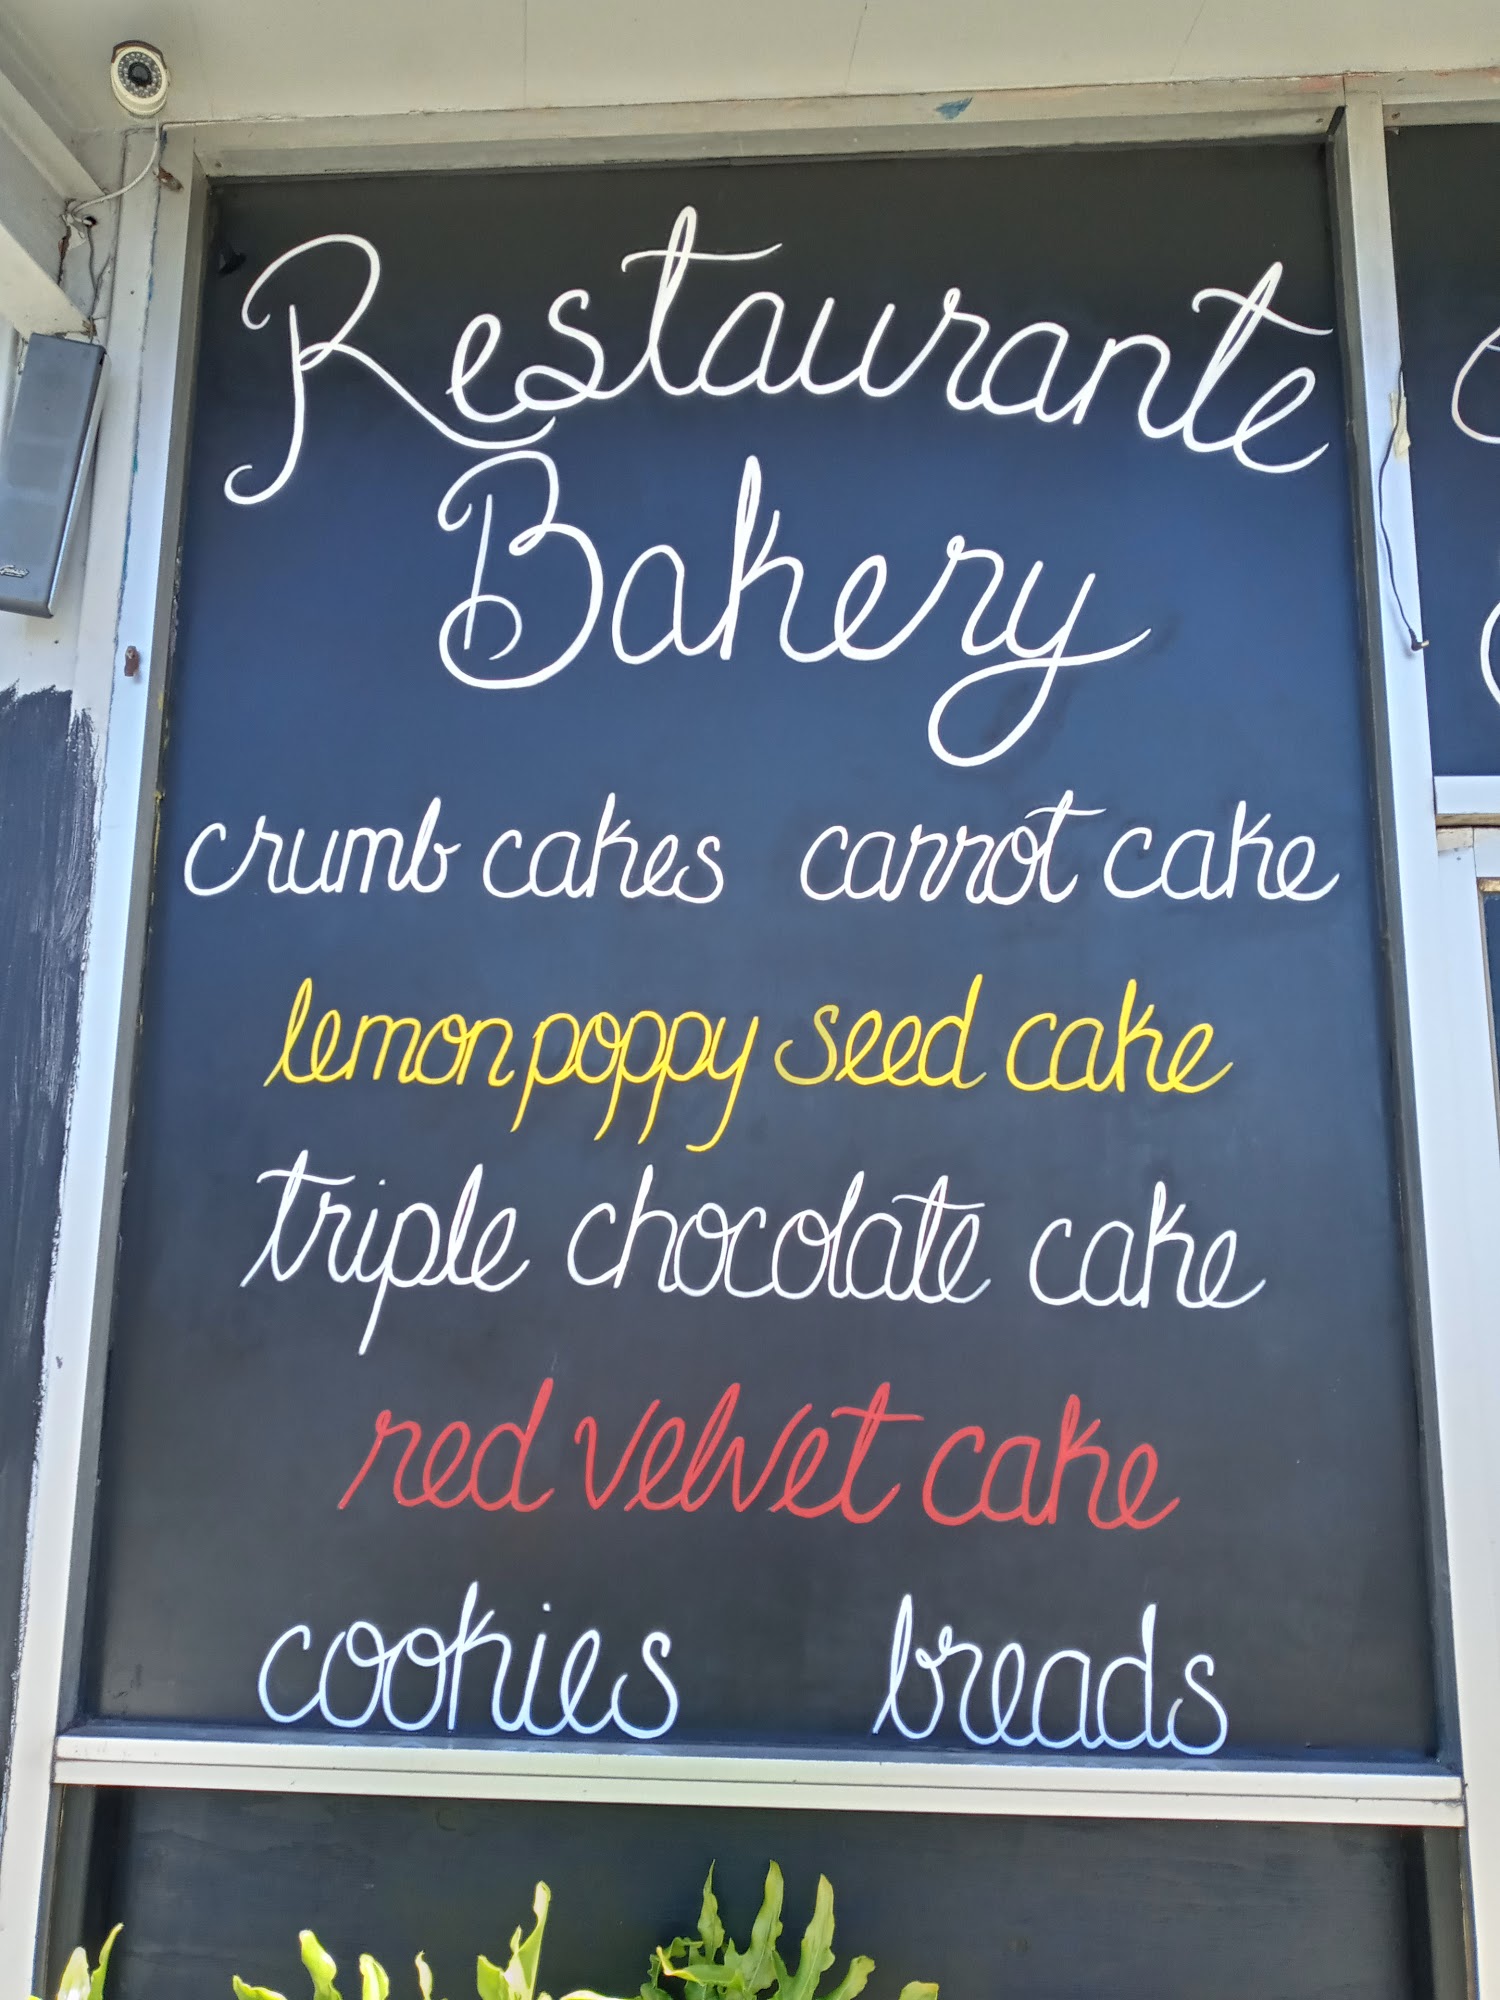 Restaurante
Bakery
crumb cakes carrot cake
lemon poppy seed cake
triple chocolate cake
red velvet cake
cookies breads